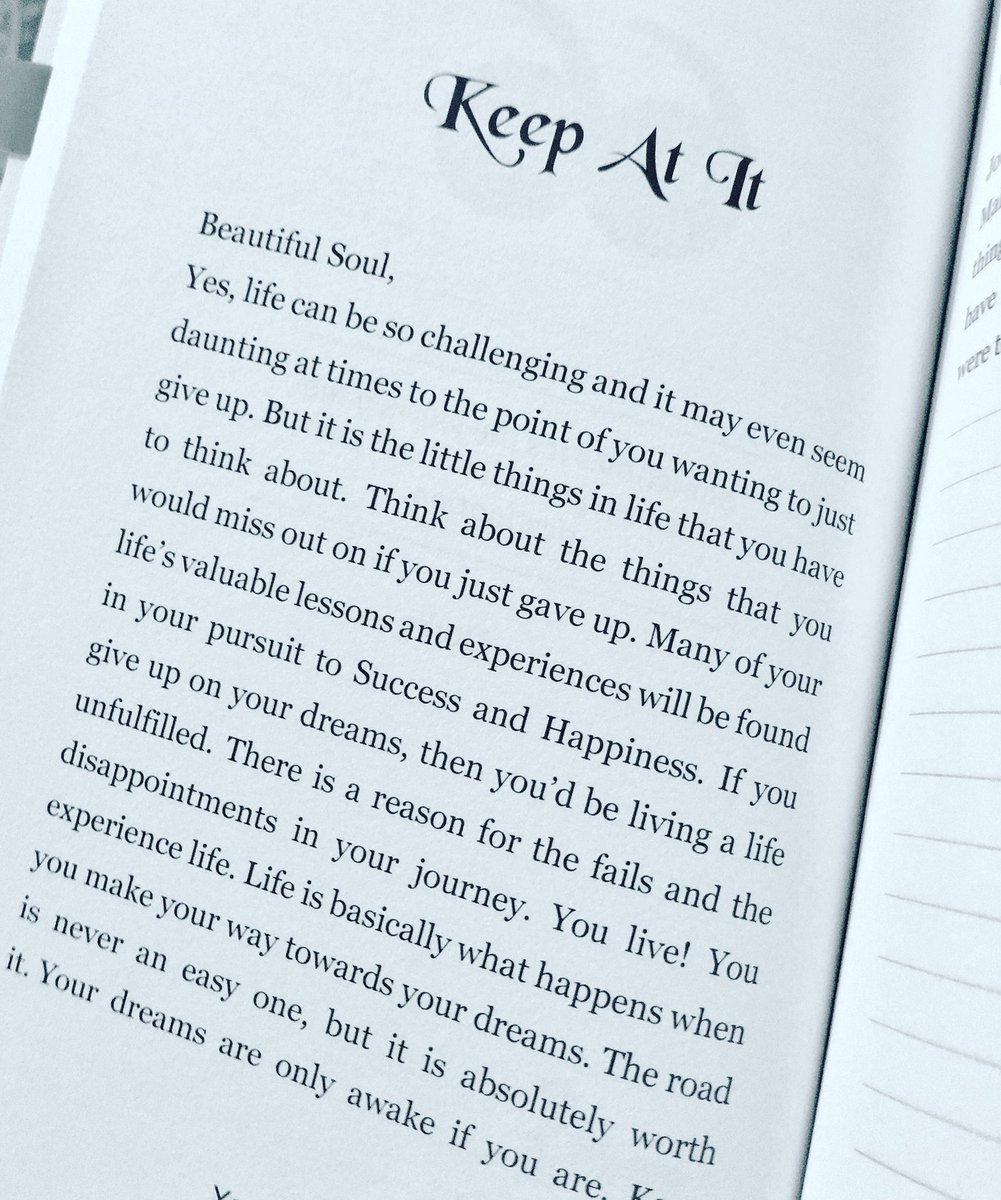 Keep At It
Beautiful Soul,
Yes, life can be so challenging and it may even seem
daunting at times to the point of you wanting to just
give up. But it is the little things in life that you have
to think about. Think about the things that you
would miss out on if you just gave up. Many of your
life's valuable lessons and experiences will be found
in your pursuit to Success and Happiness. If you
give up on your dreams, then you'd be living a life
unfulfilled. There is a reason for the fails and the
disappointments in your journey. You live! You
experience life. Life is basically what happens when
you make your way towards your dreams. The road
is never an easy one, but it is absolutely worth
it. Your dreams are only awake if you are.
have
were